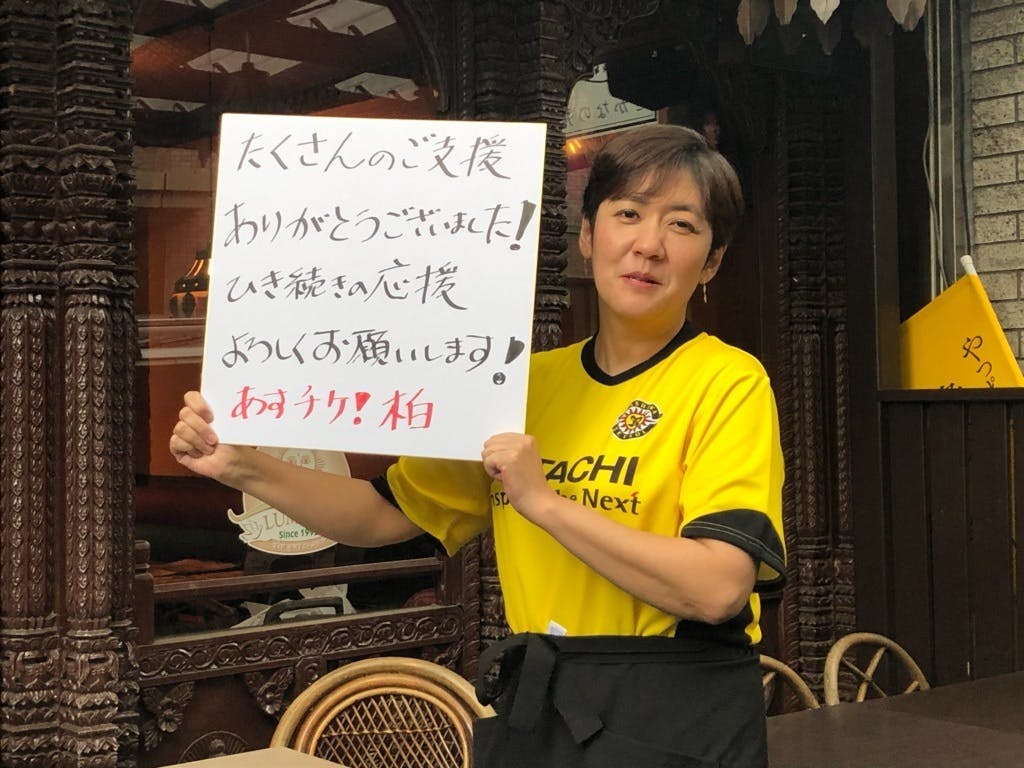 たくさんのご支援
ありがとうございました!
ひき続きの応援
よろしくお願いします!
あすチケ!柏
TACHI
Next
Since 199
やっぱ